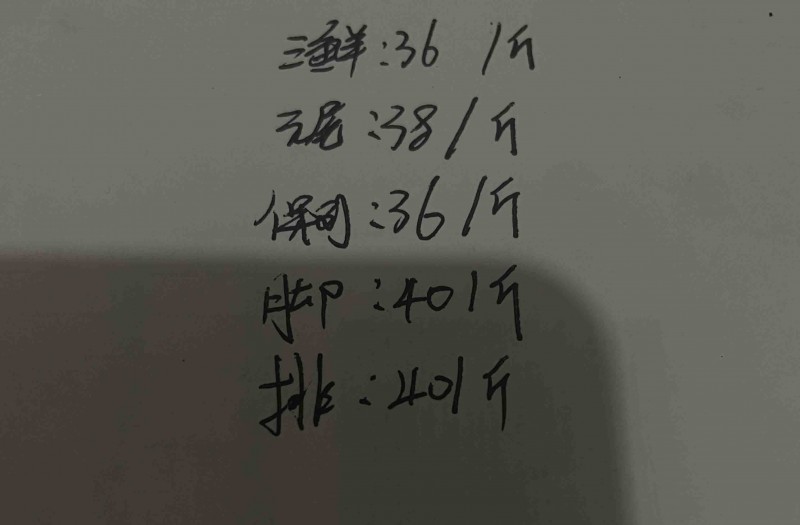 三鲜:36 /斤
云尾:38/斤
保间:36/斤
脚:40/斤
排:40/斤